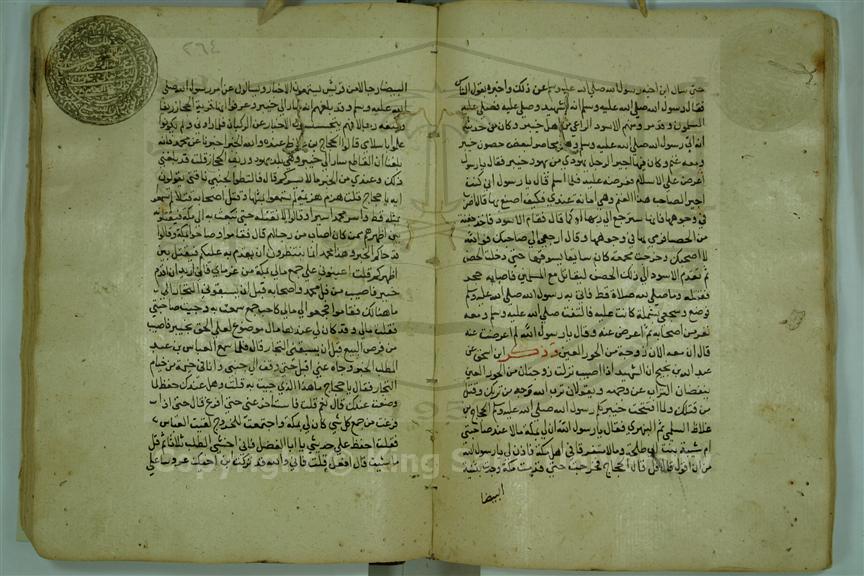 حتى سال ابن اخيه رسول الله صلى الله عليه وسلم عن ذلك واخبره بقول الناس
فقال رسول الله صلى الله عليه وسلم انه لشهيد وصلى عليه فصلى عليه
المسلمون وقد مر ومنهم الاسود الراعي من اهل خيبر وكان من حديثه
انه اتى رسول الله صلى الله عليه وسلم وهو محاصر لبعض حصون خيبر
ومعه غنم وكان فيها اجير الرجل يهودي من يهود خيبر فقال يارسول
اعرض على الاسلام فعرضه عليه فلما اسلم قال يا رسول اني كنت
اجير الصاحب هذا الغنم وهي امانة عندي فكيف اصنع بها قال اضرب
في وجوهها فانها سترجع الى ربها او كما قال فقام الاسود فاخذ حفنة
من الحصا فرمى بها في وجوهها وقال ارجعي الى صاحبك فوالله
لا اصحبك وخرجت مجتمعة كان سايقا يسوقها حتى دخلت الحصن
ثم تقدم الاسود الى ذلك الحصن ليقاتل مع المسلمين فاصابه حجر
فقتله وما صلى لله صلاة قط فاتى به رسول الله صلى الله عليه وسلم
فوضع وسجى بشملة كانت عليه فالتفت صلى الله عليه وسلم ومعه
نفر من اصحابه ثم اعرض عنه وقال يا رسول الله لم اعرضت عنه
قال ان معه الان زوجته من الحور العين وذكر ابن اسحق عن
عبد الله بن ابي نجيح ان الشهيد اذا اصيب نزلت زوجتان من الحور العين
ينفضان التراب عن وجهه ويقولان ترب الله وجه من تربك وقتل
من قتلك ولما افتتحت خيبر كلم رسول الله صلى الله عليه وسلم الحجاج بن
علاط السلمي ثم البهزي فقال يا رسول الله ان لي بمكة مالا عند صاحبتي
ام شيبة بنت ابي طلحة ومالا متفرقا في اهل مكة فاذن لي يا رسول الله
من ان اقول قال قل قال الحجاج فخرجت حتى قدمت مكة وجدت بثنية
البيضا
٢٦٤
البيضا رجالا من قريش يستمعون الاخبار ويسالون عن امر رسول الله صلى
الله عليه وسلم وقد بلغهم انه سار الى خيبر وعرفوا انها قرية الحجاز ريفا
ومنعة ورجالا فهم يتحسسون الاخبار عن الركبان فلما راوني ولم يكونوا
علموا باسلامي قالوا الحجاج بن علاط عنده والله الخبر اخبرنا عن محمد فانه
بلغنا ان القاطع سار الى خيبر وهي بلد يهود وريف الحجاز قلت قد بلغني
ذلك وعندي من الخبر ما لا يسركم قال فالتبطوا بجنبي ناقتي يقولون
ايه يا حجاج قلت هزم هزيمة لم تسمعوا بمثلها وقتل اصحابه قتلا لم تسمعوا
بمثله قط واسر محمد اسيرا وقالوا لا نقتله حتى نبعث به الى مكة فيقتلوه
بين اظهرهم بمن كان اصاب من رجالهم قال فقاموا وصاحوا بمكة وقالوا
قد جاكم الخبر وهذا محمد انما ينتظرون ان يقدم به عليكم فيقتل بين
اظهركم قلت اعينوني على جمع مالي بمكة من غرماي فاني اريد ان اقدم
خيبر فاصيب من فل محمد واصحابه قبل ان يسبقوني التجار الى
ما هنالك فقاموا فجمعوا لي مالي كاحب جمع سمعت به وجيت صاحبتي
فقلت مالي وقد كان لي عندها مال موضوع لعلي الحق بخيبر فاصيب
من فرص البيع قبل ان يسبقني التجار قال فلما سمع العباس بن عبد
المطلب الخبر وجاه عني اقبل حتى وقف الى جنبي وانا في خيمة من خيام
التجار فقال يا حجاج ما هذا الذي جيت به قلت وهل عندك حفظ لما
وضعت عندك قال نعم قلت فاستاخر عني حتى افرغ قال حتى اذا
فرغت من جمع كل شي كان لي بمكة واجتمعت الخروج لقيت العباس
فقلت احفظ علي حديثي يا ابا الفضل فاني اخشى الطلب ثلاثا ثم قل
ما شيت قال افعل قلت فاني والله قد تركت ابن اخيك عروسا على